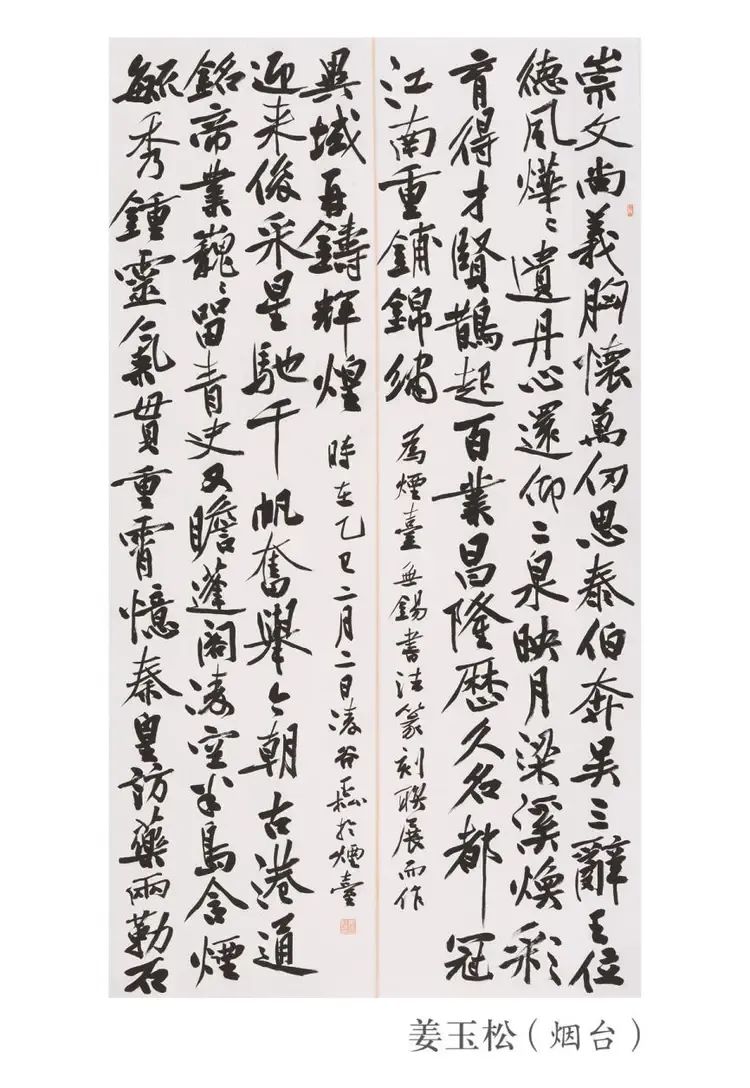 崇文尚義胸懷萬仞思泰伯奔吳三辭王位
德風燁〻遺丹心還仰二泉映月梁溪煥彩
育得才賢鵲起百業昌隆歷久名都冠
江南重鋪錦繡
為煙臺無錫書法篆刻聯展而作
毓秀鍾靈氣貫重霄憶秦皇訪藥兩勒石
銘帝業巍〻留青史又瞻蓬閣凌空半島含煙
迎来俊采星馳千帆奮舉今朝古港通
異域再鑄輝煌
時在乙巳二月二日凌谷於煙臺
姜玉松（烟台）